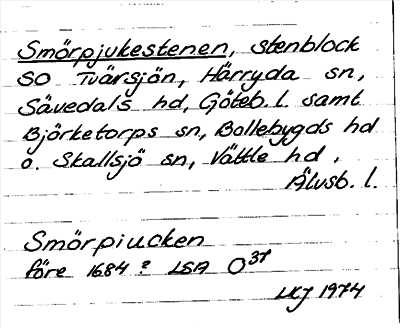 Smörpjukestenen, stenblock
SO Tvärsjön, Härryda sn,
Sävedals hd, Göteb. l. samt
Björketorps sn, Bollebygds hd
o. Skallsjö sn, Vättle hd.
Älvsb. l.
Smörpiucken
före 1684? LSA O37
LKJ 1974